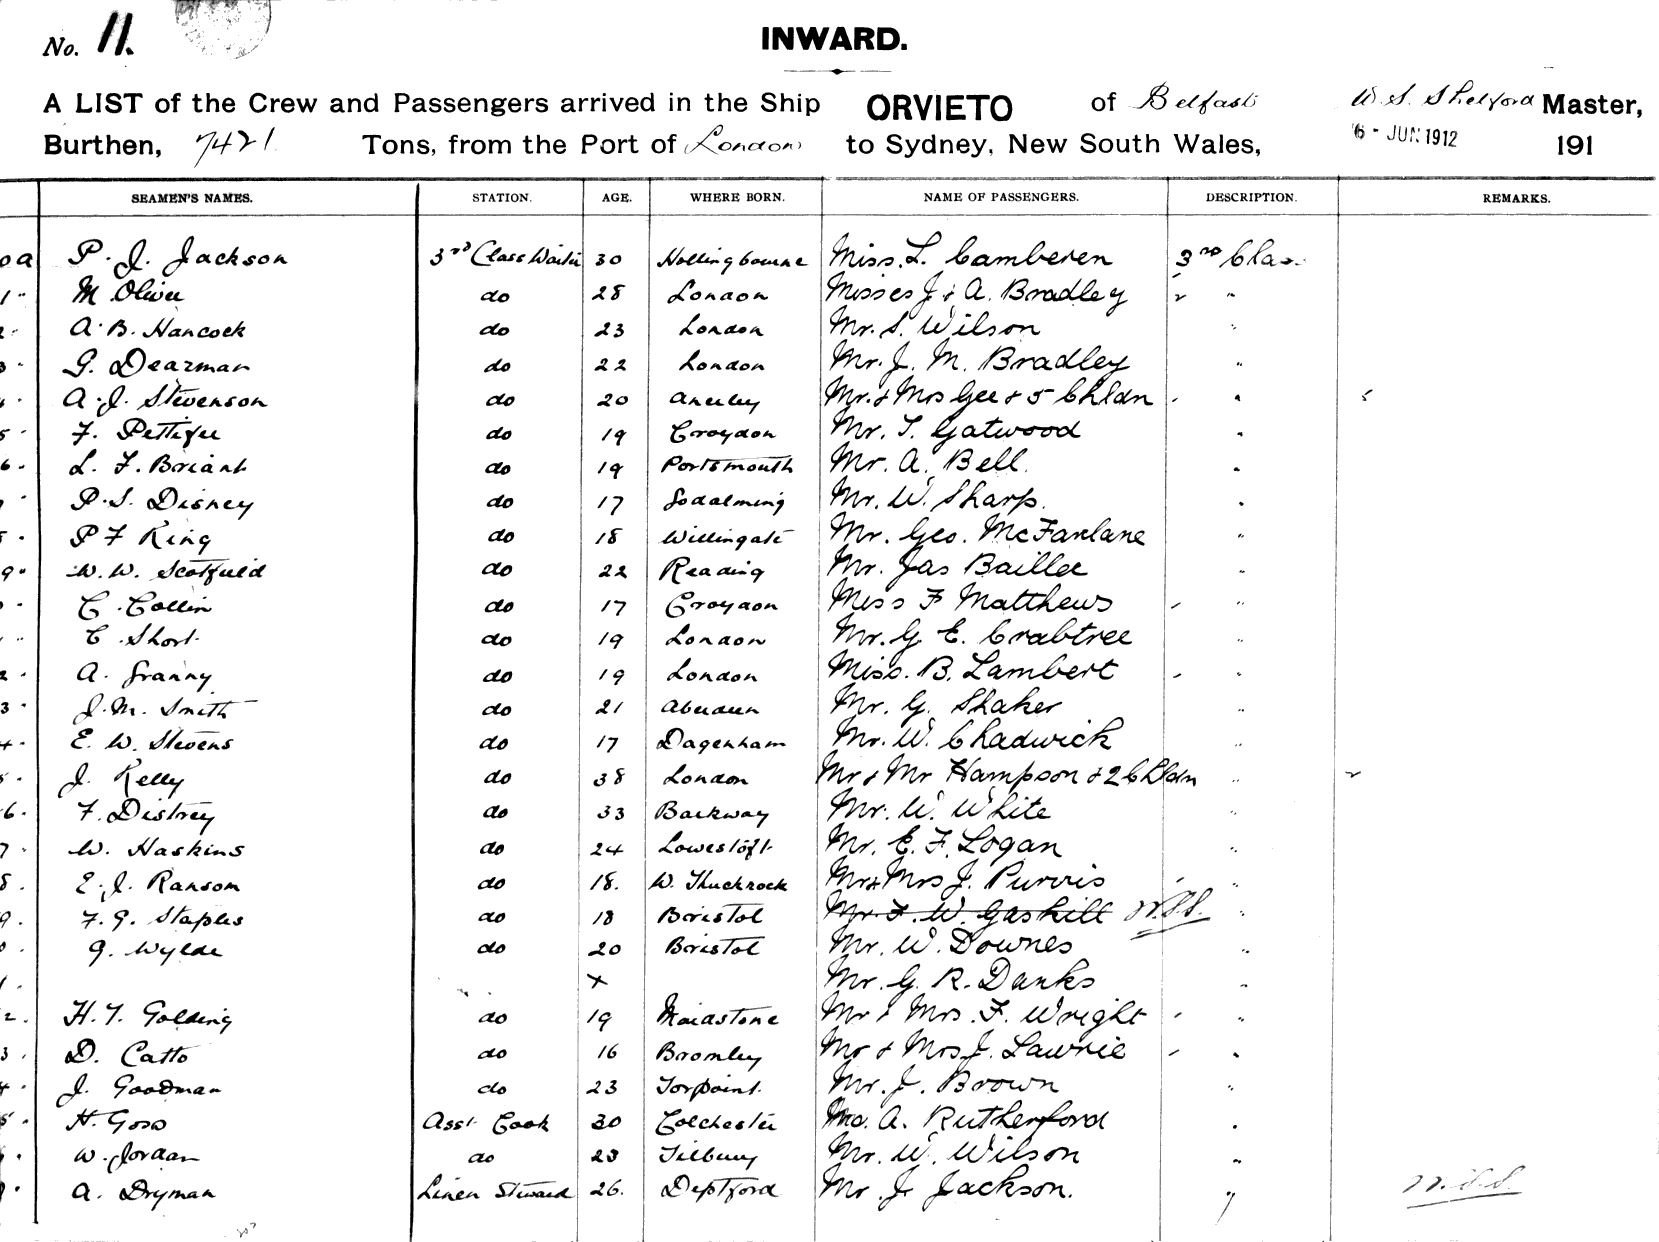 No. 11.
INWARD.
A LIST of the Crew and Passengers arrived in the Ship ORVIETO of Belfast W. S. Shelford Master,
Burthen, 7421 Tons, from the Port of London to Sydney, New South Wales, 6 - JUN 1912 191
SEAMEN'S NAMES. STATION. AGE. WHERE BORN. NAME OF PASSENGERS. DESCRIPTION. REMARKS.
P. J. Jackson 3rd Class Waiter 30 Hollingbourne Miss. L. Camberen 3rd Class
1 " M Oliver do 28 London Misses J & A. Bradley 2 "
A. B. Hancock do 23 London Mr. S. Wilson "
3 " G. Dearman do 22 London Mr. J. M. Bradley "
A. J. Stevenson do 20 Anerley Mr. & Mrs Gee & 5 Chldn "
5 " F. Pettifer do 19 Croydon Mr. T. Gatwood "
6 . L. F. Briant do 19 Portsmouth Mr. A. Bell. "
P. S. Disney do 17 Godalming Mr. W. Sharp. "
P F King do 18 Willingale Mr. Geo. McFarlane "
9 " W. W. Scotfield do 22 Reading Mr. Jas Baillee "
C. Collin do 17 Croydon Miss F Matthews "
C. Short do 19 London Mr. G. E. Crabtree "
A. Granny do 19 London Miss. B. Lambert "
3 " J. M. Smith do 21 Aberdeen Mr. G. Shaker "
4 . E. W. Stevens do 17 Dagenham Mr. W. Chadwick "
J. Kelly do 38 London Mr & Mr Hampson & 2 Chldn "
6 . F. Distrey do 33 Barkway Mr. W. White "
7 . W. Haskins do 24 Lowestoft Mr. E. F. Logan "
8 . E. J. Ranson do 18. W. Thuckrock Mr & Mrs J. Purvis "
9 . F. G. Staples do 18 Bristol Mr. F. W. Gaskill W.S.S. "
G. Wylde do 20 Bristol Mr. W. Downes "
x Mr. G. R. Danks "
2 . H. T. Golding do 19 Maidstone Mr & Mrs. F. Wright "
3 . D. Catto do 16 Bromley Mr & Mrs J. Lawrie "
4 . J. Goodman do 23 Torpoint. Mr. J. Brown "
5 . H. Goss Asst Cook 30 Colchester A. Rutherford "
W. Jordan do 23 Tilbury Mr. W. Wilson "
A. Dryman Linen Steward 26. Deptford Mr. J. Jackson. " W.S.S.